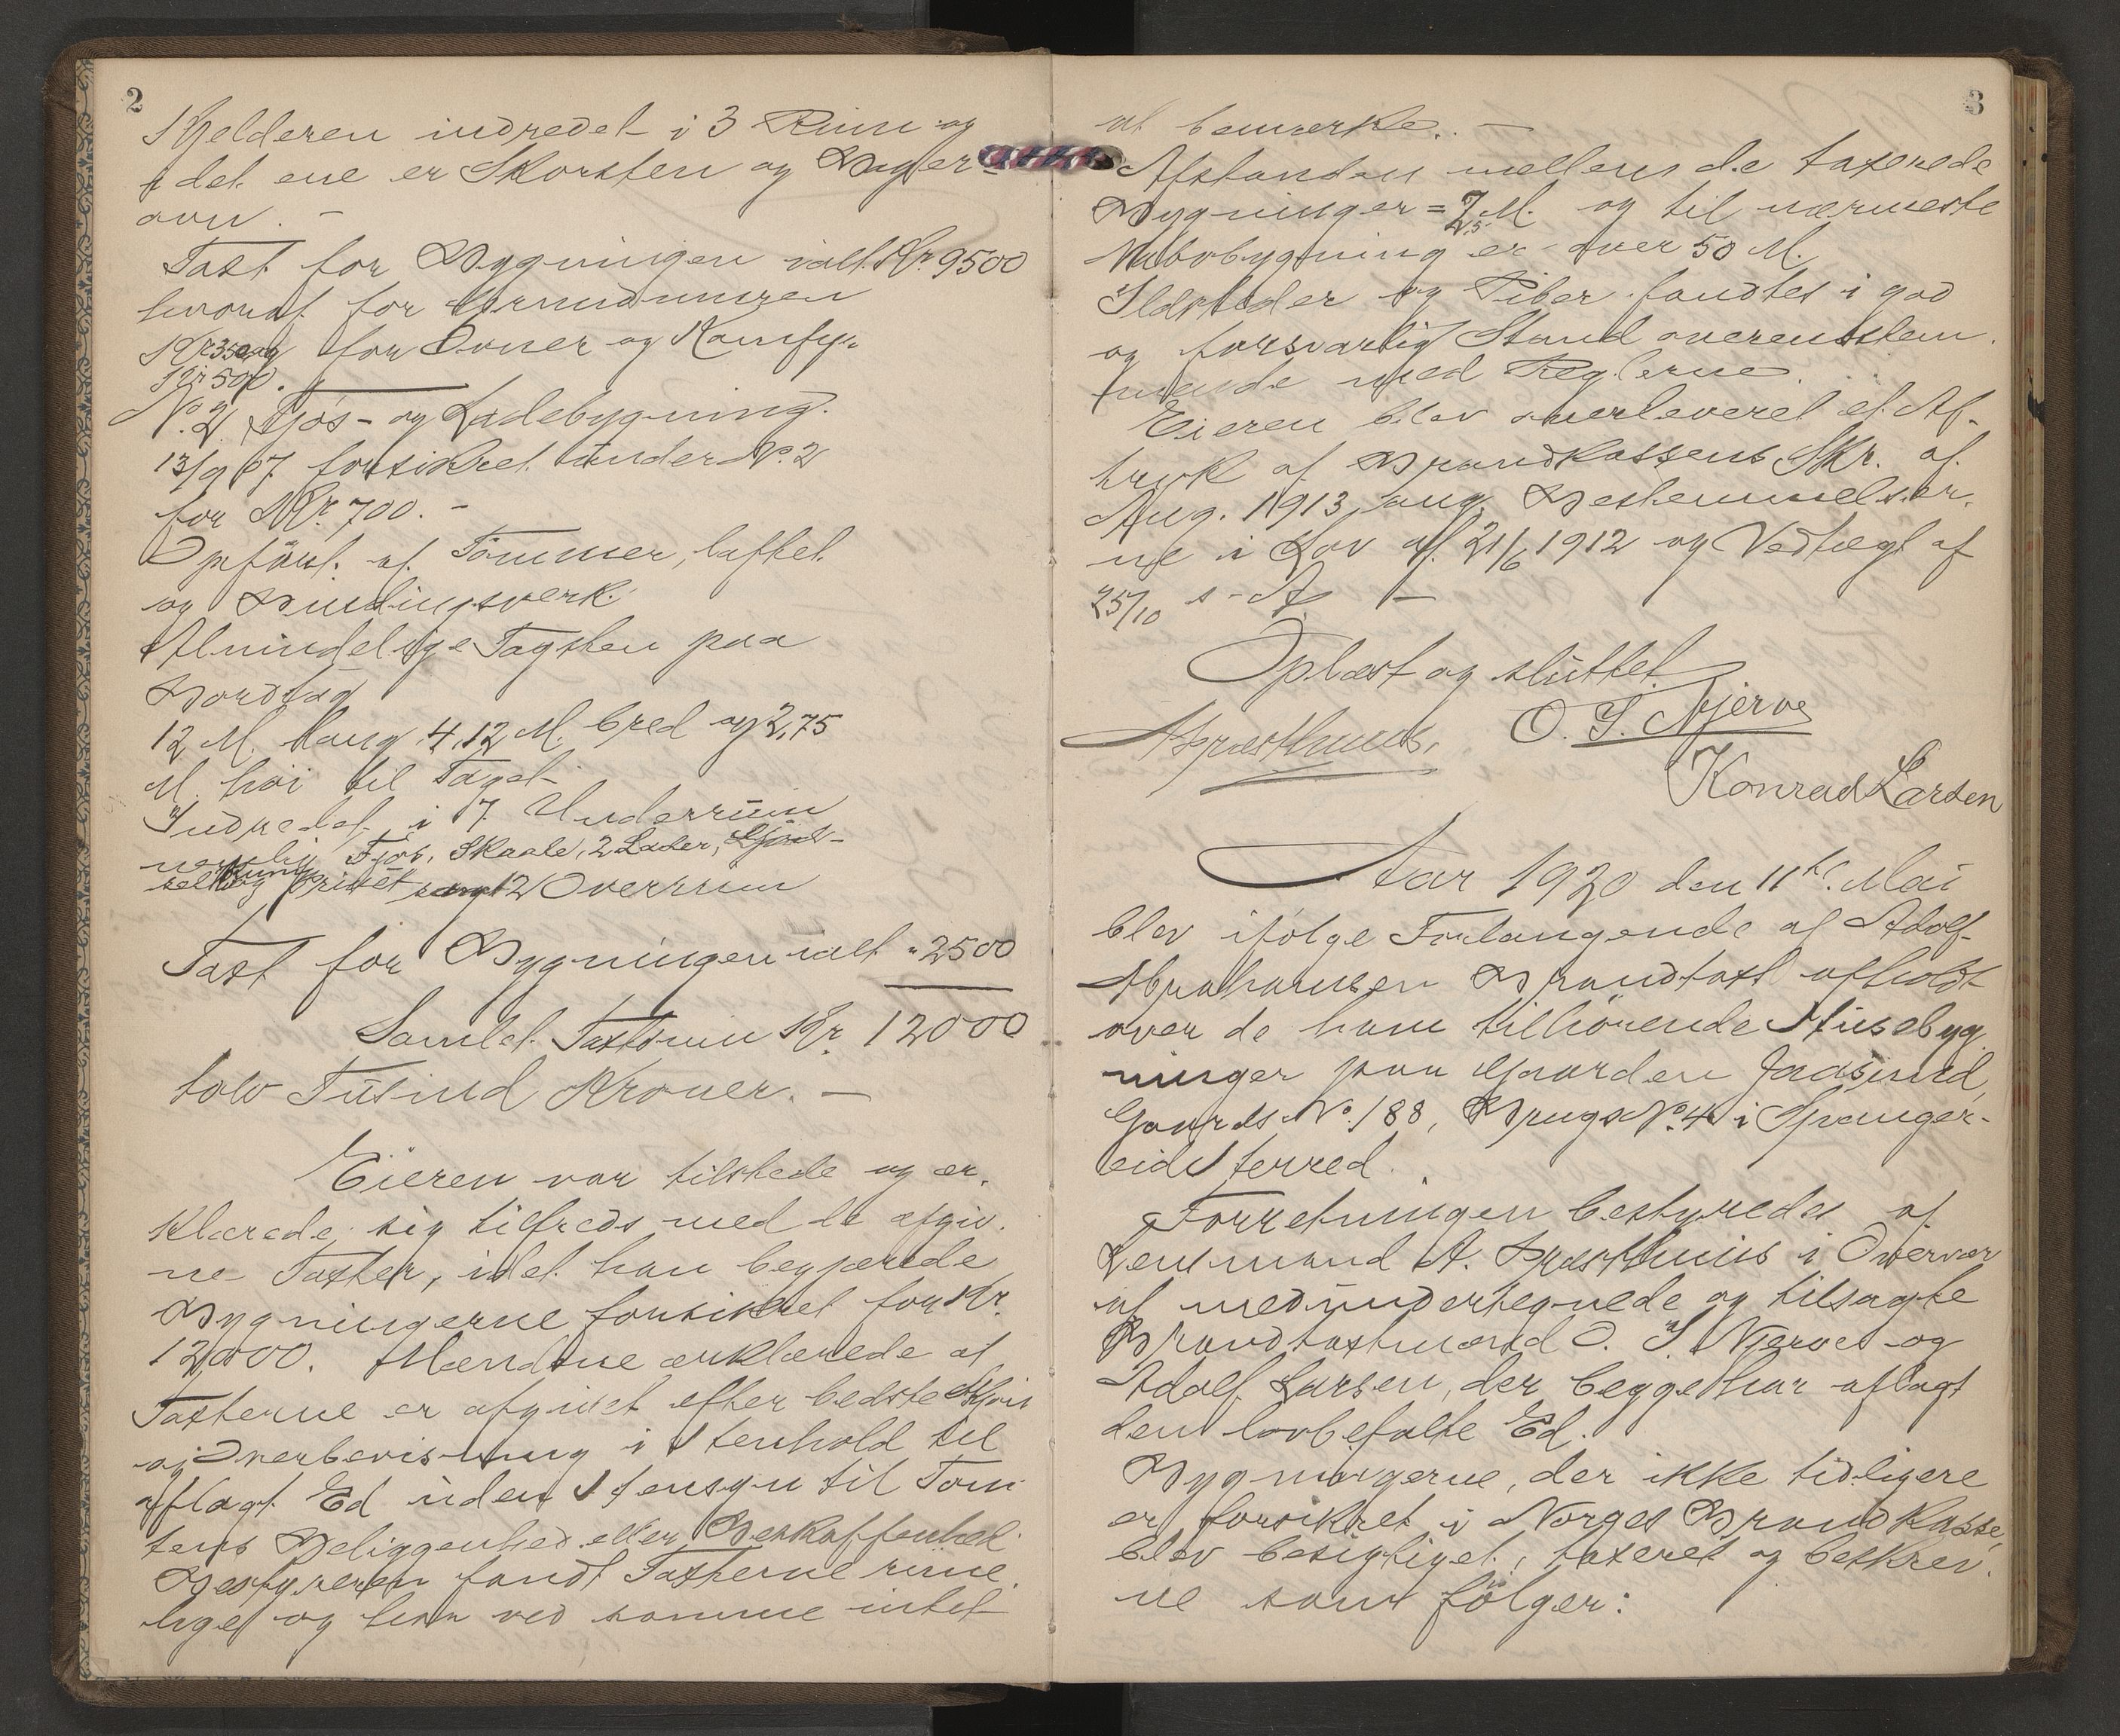 2
Kjelderen indredet i 3 Rum og
i det ene er Skorsten og Bager-
ovn. -
Taxt for Bygningen ialt Kr. 9500
hvoraf for Grundmuren
Kr 350 og for Ovner og Komfyr
Kr 500.
No. 2. Fjøs- og Ladebygning.
13/9 07 forsikret under No. 2
for Kr. 700. -
Opført af Tømmer, laftet
og Bindingsverk.
Almindelige Tagsten paa
Bordtag
12 M. lang 4,12 M. bred og 2,75
M. høi til Taget.
Indredet i 7 Underrum
nemlig Fjøs, Skaale, 2 Lader,
og Privet samt 2 Overrum
Taxt for Bygningen ialt " 2500
Samlet Taxtsum Kr. 12000
tolv Tusind Kroner. -
Eieren var tilstede og er-
klærede sig tilfreds med de afgiv-
ne Taxter, idet han begjærede
Bygningerne forsikret for Kr.
12000. Mændene erklærede at
Taxterne er afgivet efter bedste Skjøn
og Overbevisning i Henhold til
aflagt Ed uden Hensyn til Tom-
tens Beliggenhed eller Beskaffenhet.
Bestyreren fandt Taxterne rime-
lige og har ved samme intet
3
at bemærke. -
Afstanden mellem de taxerede
Bygninger = 7,25 M. og til nærmeste
Nabobygning er over 50 M.
Ildsteder og Piber fandtes i god
og forsvarlig Stand overenstem-
mende med Reglerne.
Eieren blev overleveret et Af-
tryk af Brandkassens Skr. af
Aug. 1913 ang. Bestemmelser-
ne i Lov af 21/6 1912 og Vedtægt af
25/10 s. A. -
Oplæst og sluttet
A Præsthuus. O. T. Njerve
Konrad Larsen
Aar 1920 den 11te Mai
blev ifølge Forlangende af Adolf
Abrahamsen Brandtaxt afholdt
over de ham tilhørende Husebyg-
ninger paa Gaarden Jaasund,
Gaards No. 188, Brugs No. 4 i Spanger-
eid Herred.
Forretningen bestyredes af
Lensmand A. Præsthuus i Overvær
af medundertegnede og tilsagte
Brandtaxtmænd O. T. Njerves og
Adolf Larsen, der begge har aflagt
den lovbefalte Ed.
Bygningerne, der ikke tidligere
er forsikret i Norges Brandkasse,
blev besigtiget, taxeret og beskrev-
ne som følger: